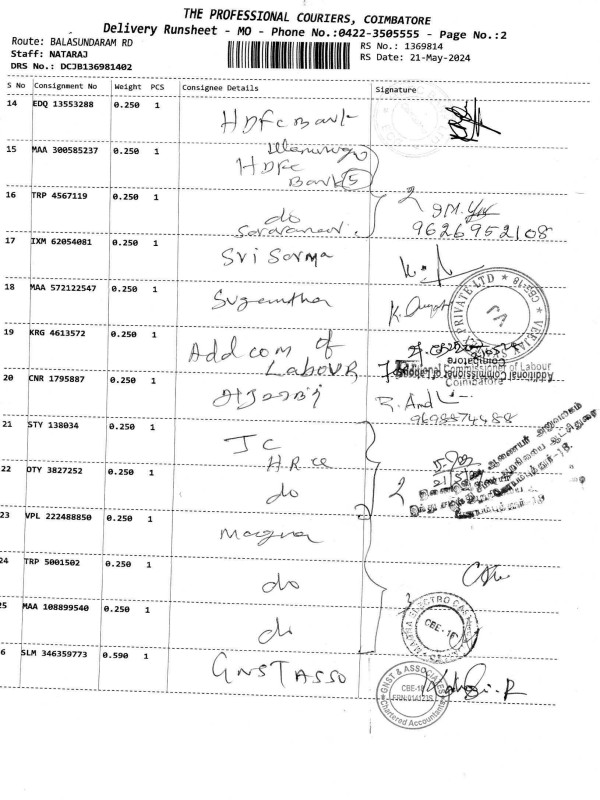 THE PROFESSIONAL COURIERS, COIMBATORE
Delivery Runsheet - MO - Phone No.:0422-3505555 - Page No.:2
Route: BALASUNDARAM RD
Staff: NATARAJ
DRS No.: DCJB136981402
RS No.: 1369814
RS Date: 21-May-2024
S No Consignment No Weight PCS Consignee Details Signature
14 EDQ 13553288 0.250 1 HDFC Bank
15 MAA 300585237 0.250 1 HDFC Bank 5
16 TRP 4567119 0.250 1 do Saravanan. 2
9626952108
17 IXM 62054081 0.250 1 Sri Sarma
18 MAA 572122547 0.250 1 Sugantha
PRIVATE LTD
19 KRG 4613572 0.250 1 Add com of LABOUR
Additional Commissioner of Labour
Coimbatore
20 CNR 1795887 0.250 1
9698874488
21 STY 138034 0.250 1 JC HRCE
22 OTY 3827252 0.250 1 do 2
23 VPL 222488850 0.250 1 Magna
24 TRP 5001502 0.250 1 do
25 MAA 108899540 0.250 1 do 3
MAGNA ELECTRO CASTINGS
CBE-18
6 SLM 346359773 0.590 1 GNST ASSO
GNST & ASSOCIATES
CBE-18
Chartered Accountants